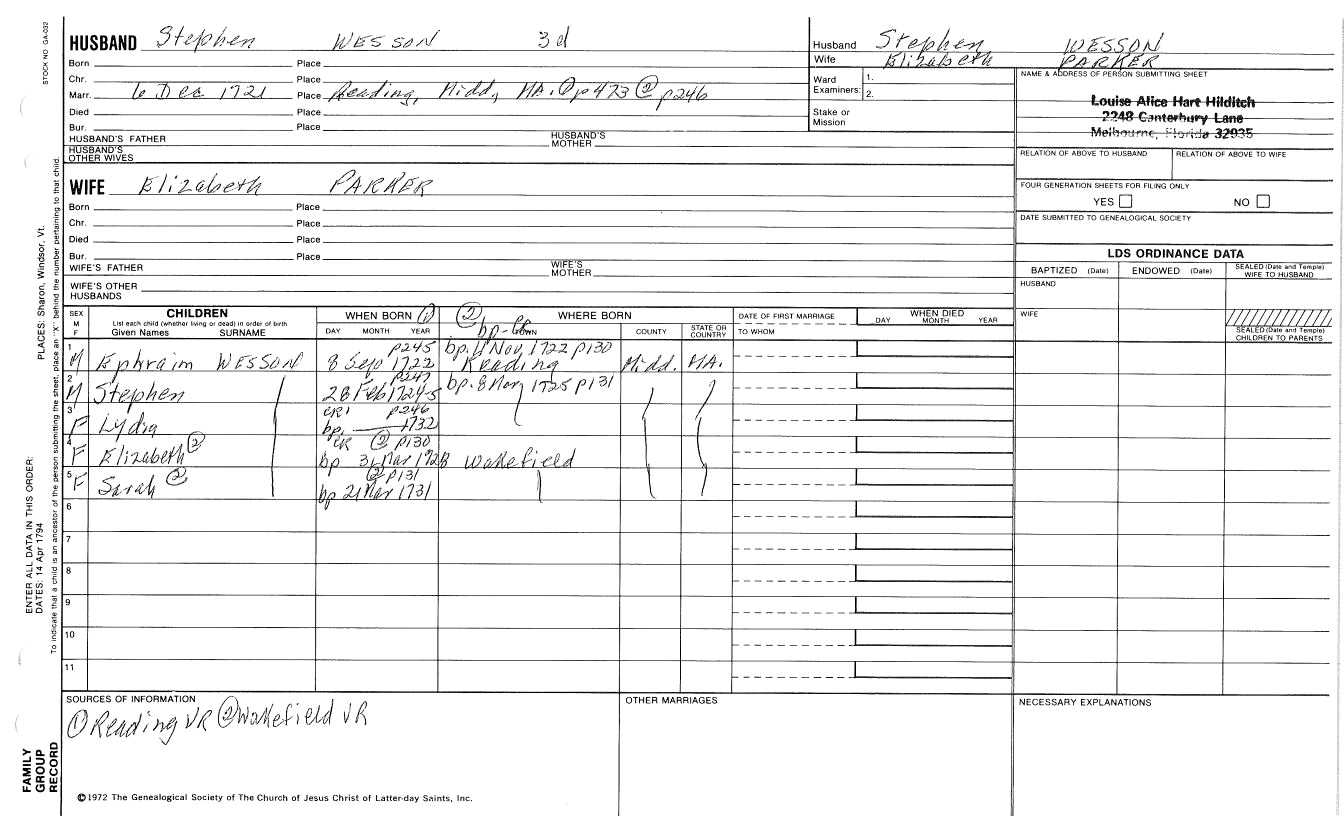 STOCK NO. GA-032
HUSBAND Stephen WESSON 3d
Born Place
Chr. Place
Marr. 6 Dec 1721 Place Reading, Midd, MA. ① p473 ② p246
Died Place
Bur. Place
HUSBAND'S FATHER HUSBAND'S MOTHER
HUSBAND'S OTHER WIVES
WIFE Elizabeth PARKER
Born Place
Chr. Place
Died Place
Bur. Place
WIFE'S FATHER WIFE'S MOTHER
WIFE'S OTHER HUSBANDS
Husband Stephen WESSON
Wife Elizabeth PARKER
Ward Examiners: 1.
2.
Stake or Mission
NAME & ADDRESS OF PERSON SUBMITTING SHEET
Louise Alice Hart Hilditch
2248 Canterbury Lane
Melbourne, Florida 32935
RELATION OF ABOVE TO HUSBAND RELATION OF ABOVE TO WIFE
FOUR GENERATION SHEETS FOR FILING ONLY
YES NO
DATE SUBMITTED TO GENEALOGICAL SOCIETY
LDS ORDINANCE DATA
BAPTIZED (Date) ENDOWED (Date) SEALED (Date and Temple) WIFE TO HUSBAND
HUSBAND
WIFE
SEALED (Date and Temple) CHILDREN TO PARENTS
SEX M F
CHILDREN
List each child (whether living or dead) in order of birth
Given Names SURNAME
WHEN BORN ①
DAY MONTH YEAR
② WHERE BORN
TOWN COUNTY STATE OR COUNTRY
DATE OF FIRST MARRIAGE
TO WHOM
WHEN DIED
DAY MONTH YEAR
1 M Ephraim WESSON p245 8 Sep 1722 bp. 11 Nov, 1722 p130 Reading Midd. MA.
2 M Stephen p247 28 Feb 1724-5 bp. 8 Nov 1725 p131
3 F Lydia CR1 p246 bp. 1732
4 F Elizabeth ② CR ② p130 bp 31 Mar 1728 Wakefield
5 F Sarah ② ② p131 bp 21 Mar 1731
6
7
8
9
10
11
SOURCES OF INFORMATION
① Reading VR ② Wakefield VR
OTHER MARRIAGES
NECESSARY EXPLANATIONS
©1972 The Genealogical Society of The Church of Jesus Christ of Latter-day Saints, Inc.
FAMILY GROUP RECORD
ENTER ALL DATA IN THIS ORDER:
DATES: 14 Apr 1794
PLACES: Sharon, Windsor, Vt.
To indicate that a child is an ancestor of the person submitting the sheet, place an "X" behind the number pertaining to that child.